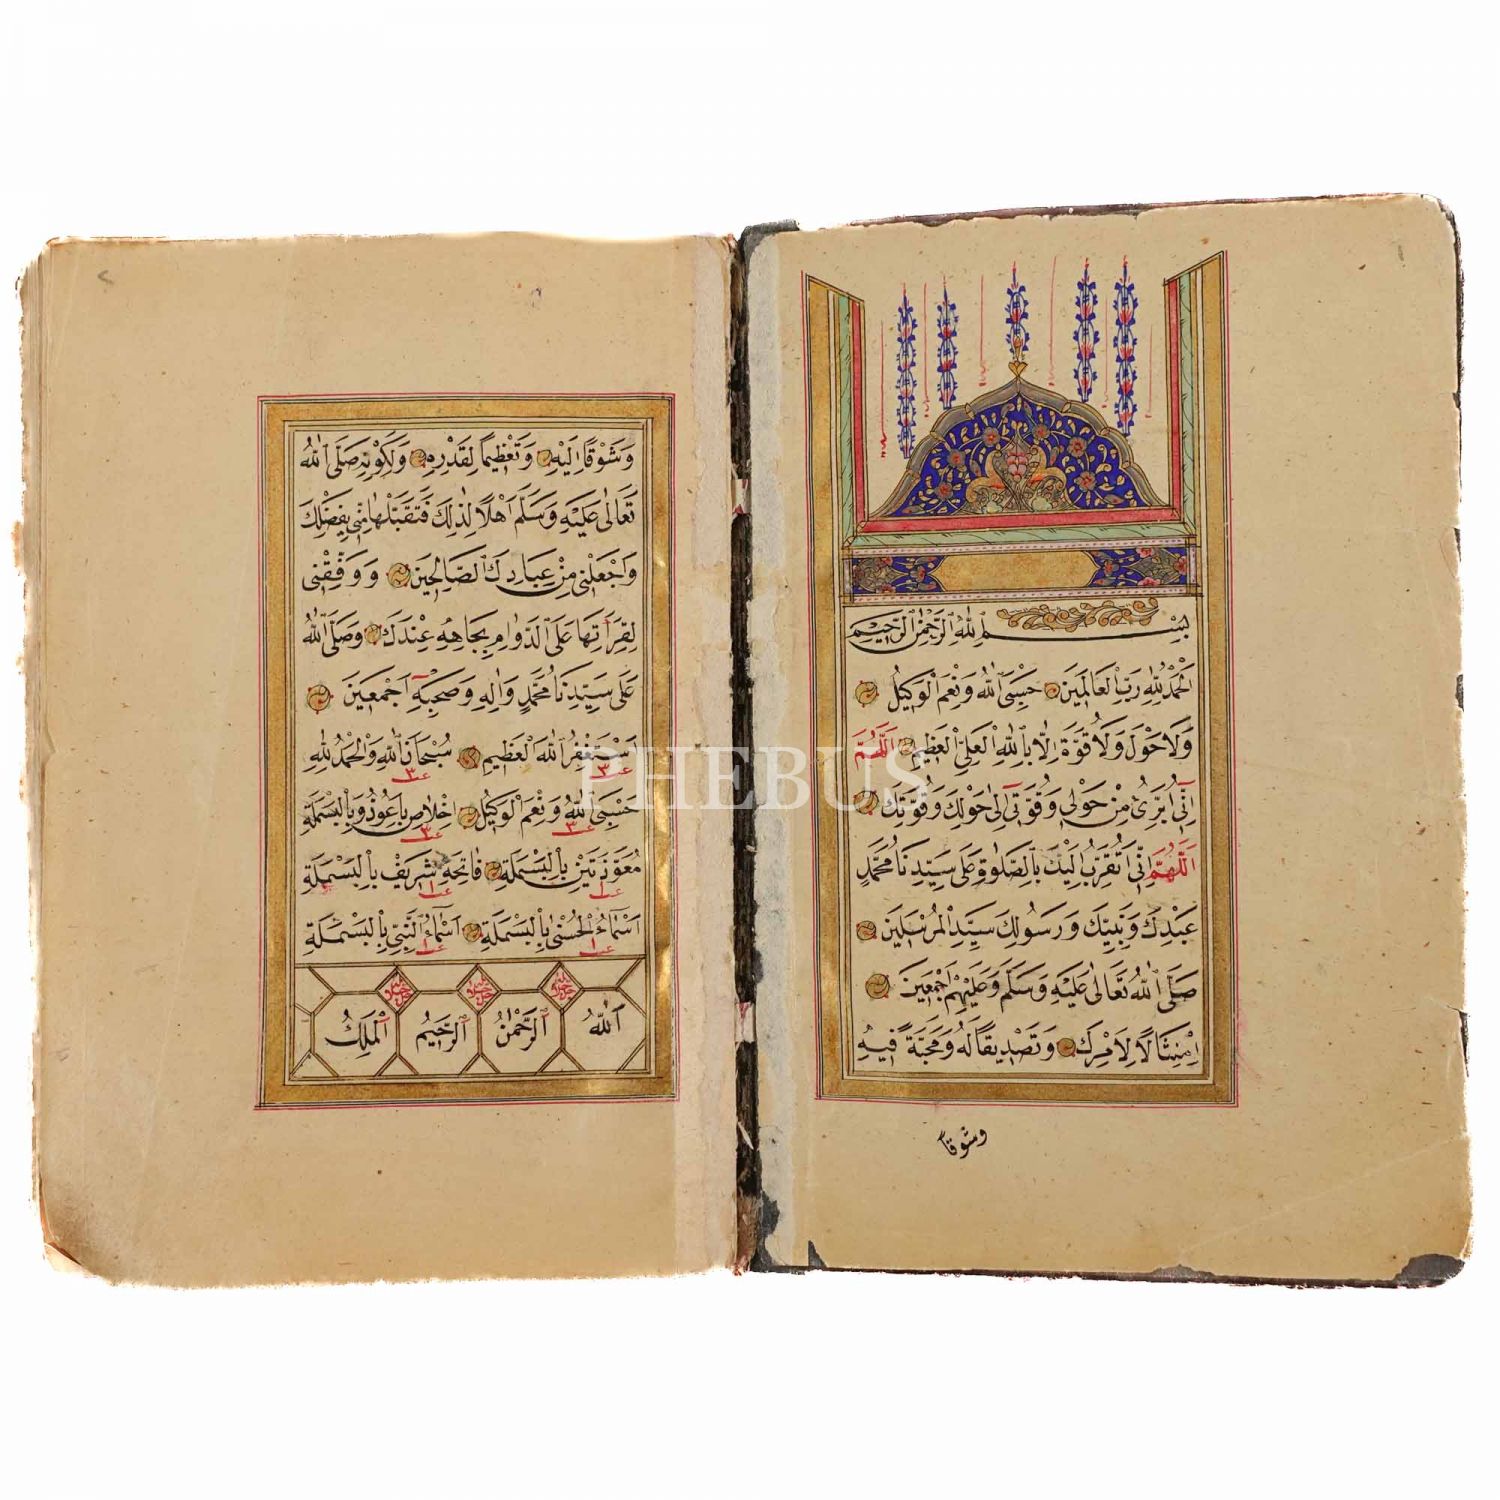 بِسْمِ اللهِ الرَّحْمٰنِ الرَّحِيمِ
اَلْحَمْدُ لِلّٰهِ رَبِّ الْعَالَمِينَ حَسْبِىَ اللهُ وَنِعْمَ الْوَكِيلُ
وَلَا حَوْلَ وَلَا قُوَّةَ اِلَّا بِاللهِ الْعَلِىِّ الْعَظِيمِ اَللّٰهُمَّ
اِنِّى اُبَرِّئُ مِنْ حَوْلِى وَقُوَّتِى اِلٰى حَوْلِكَ وَقُوَّتِكَ
اَللّٰهُمَّ اِنِّى اَتَقَرَّبُ اِلَيْكَ بِالصَّلٰوةِ عَلٰى سَيِّدِنَا مُحَمَّدٍ
عَبْدِكَ وَنَبِيِّكَ وَرَسُولِكَ سَيِّدِ الْمُرْسَلِينَ
صَلَّى اللهُ تَعَالٰى عَلَيْهِ وَسَلَّمَ وَعَلَيْهِمْ اَجْمَعِينَ
اِمْتِثَالًا لِاَمْرِكَ وَتَصْدِيقًا لَهُ وَمَحَبَّةً فِيهِ
وشوقا
وَشَوْقًا اِلَيْهِ وَتَعْظِيمًا لِقَدْرِهِ وَلِكَوْنِهِ صَلَّى اللهُ
تَعَالٰى عَلَيْهِ وَسَلَّمَ اَهْلًا لِذٰلِكَ فَتَقَبَّلْهَا مِنِّى بِفَضْلِكَ
وَاجْعَلْنِى مِنْ عِبَادِكَ الصَّالِحِينَ وَوَفِّقْنِى
لِقِرَاءَتِهَا عَلَى الدَّوَامِ بِجَاهِهِ عِنْدَكَ وَصَلَّى اللهُ
عَلٰى سَيِّدِنَا مُحَمَّدٍ وَاٰلِهِ وَصَحْبِهِ اَجْمَعِينَ
اَسْتَغْفِرُ اللهَ الْعَظِيمِ سُبْحَانَ اللهِ وَالْحَمْدُ لِلّٰهِ
٣ ٣
حَسْبِىَ اللهُ وَنِعْمَ الْوَكِيلُ اِخْلَاصِ بَاعُوذُ وَبِالْبَسْمَلَةِ
٣ ٣
مُعَوَّذَتَيْنِ بِالْبَسْمَلَةِ فَاتِحَهِ شَرِيفْ بِالْبَسْمَلَةِ
١ ١
اَسْمَاءُ الْحُسْنٰى بِالْبَسْمَلَةِ اَسْمَاءُ النَّبِىِّ بِالْبَسْمَلَةِ
١ ١
جل جلاله جل جلاله جل جلاله
اَللهُ اَلرَّحْمٰنُ اَلرَّحِيمُ اَلْمَلِكُ
PHEBUS